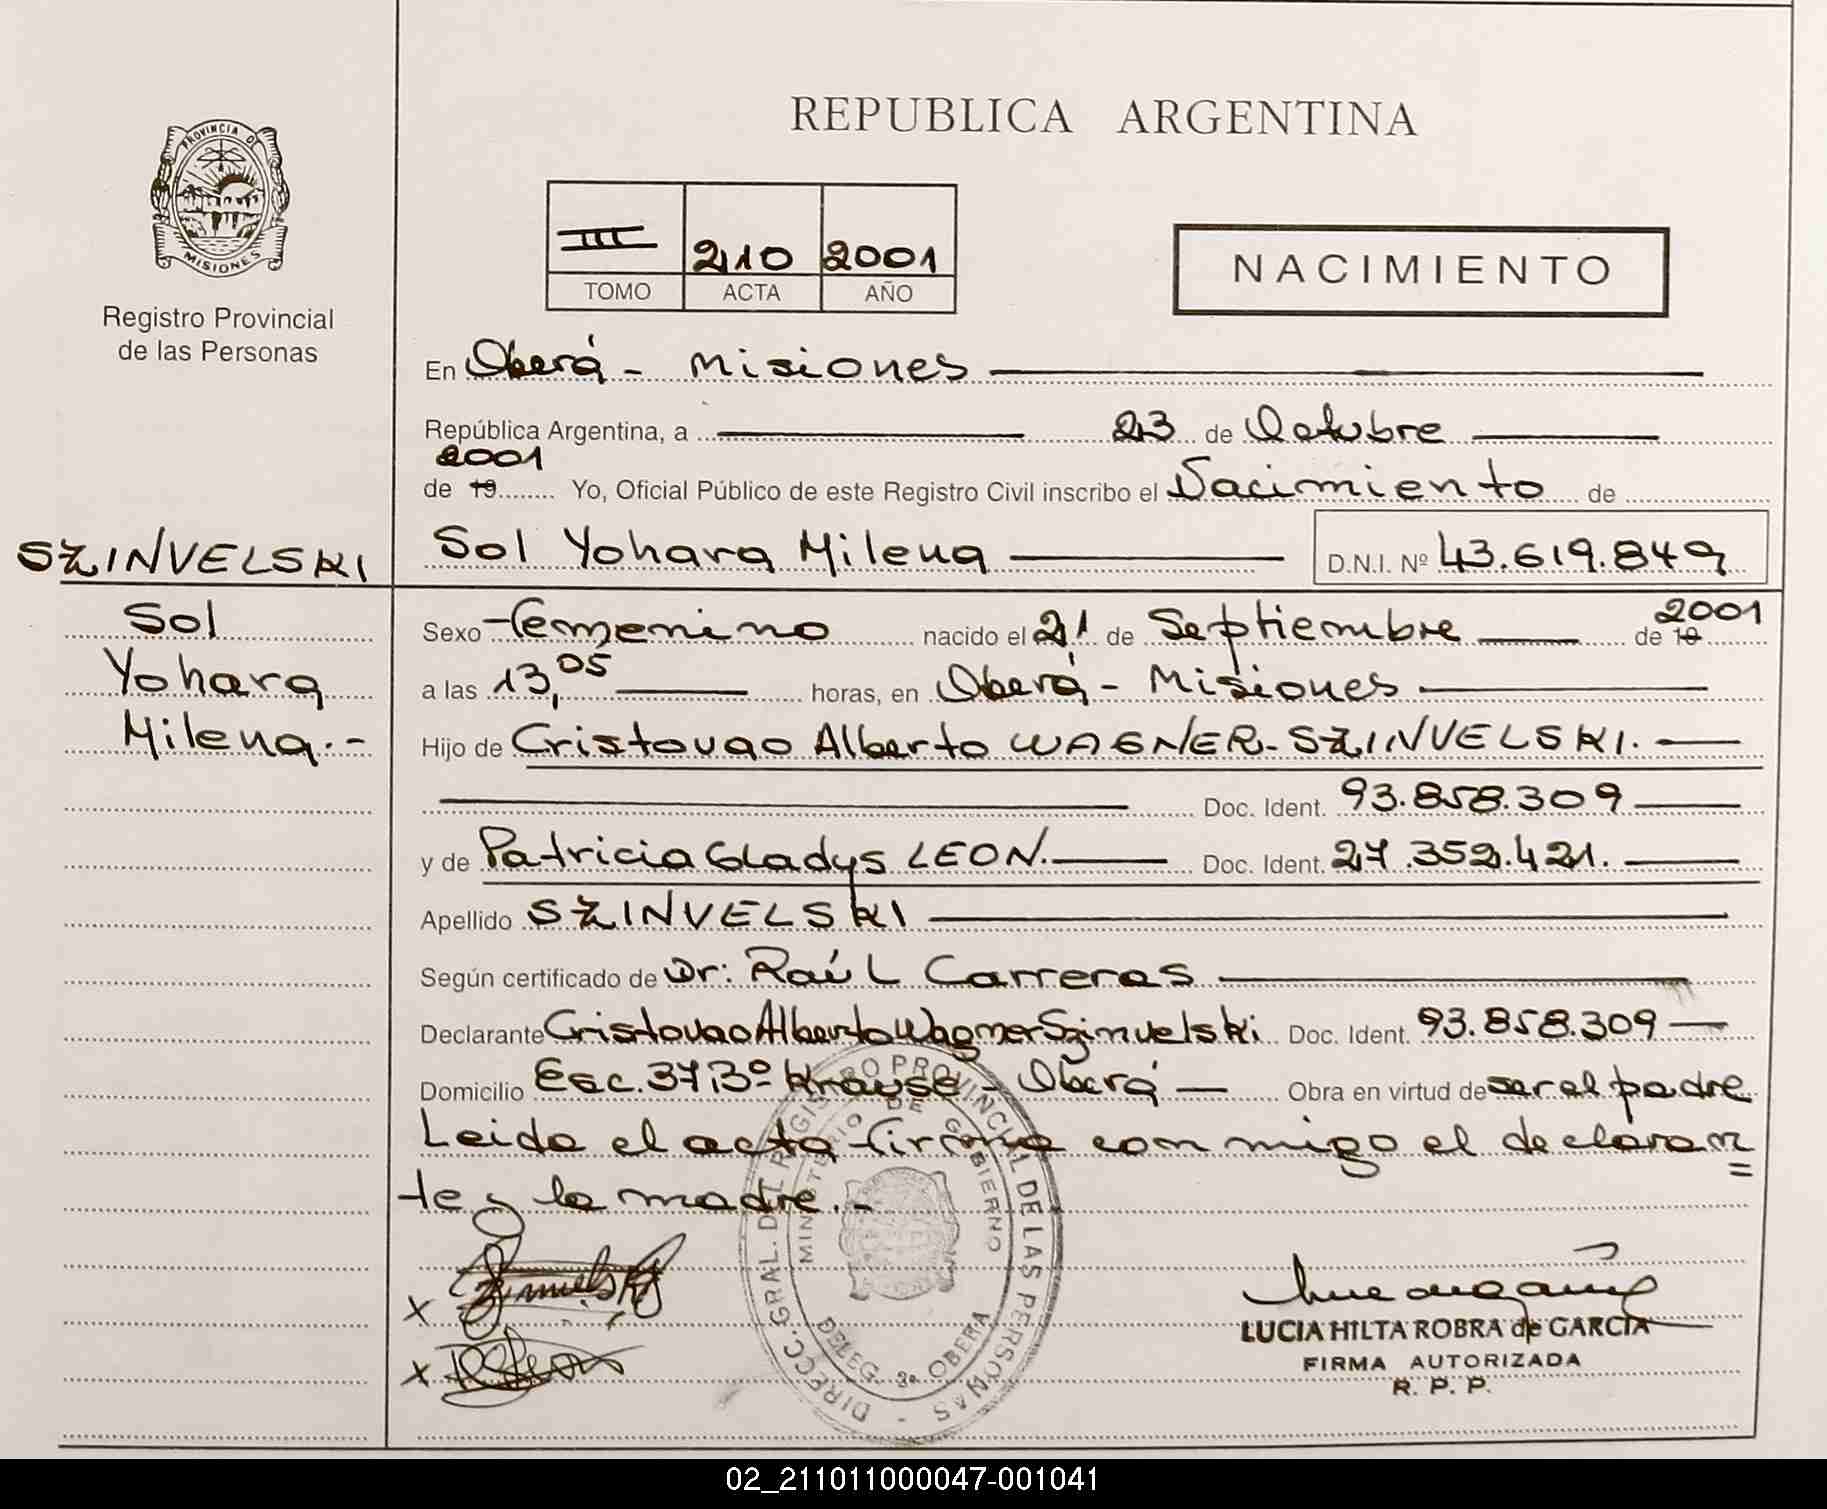 PROVINCIA DE
MISIONES
Registro Provincial
de las Personas
REPUBLICA ARGENTINA
III 210 2001
TOMO ACTA AÑO
NACIMIENTO
En Oberá - Misiones
República Argentina, a 23 de Octubre
2001
de 19 Yo, Oficial Público de este Registro Civil inscribo el Nacimiento de
SZINVELSKI
Sol Yohara Milena D.N.I. Nº 43.619.849
Sol
Yohara
Milena.-
Sexo Femenino nacido el 21 de Septiembre de 19 2001
a las 13,05 horas, en Oberá - Misiones
Hijo de Cristovao Alberto WAGNER-SZINVELSKI.
Doc. Ident. 93.858.309
y de Patricia Gladys LEON. Doc. Ident. 27.352.421.
Apellido SZINVELSKI
Según certificado de Dr: Raúl Carreras
Declarante Cristovao Alberto Wagner Szinvelski Doc. Ident. 93.858.309
Domicilio Esc. 37 Bº Krause - Oberá Obra en virtud de ser el padre
Leida el acta firma conmigo el declaran
te y la madre.-
DIRECC. GRAL. DEL REGISTRO PROVINCIAL DE LAS PERSONAS
MINISTERIO DE GOBIERNO
DELEG. 2a. OBERA
X
X
LUCIA HILTA ROBRA de GARCIA
FIRMA AUTORIZADA
R. P. P.
02_211011000047-001041